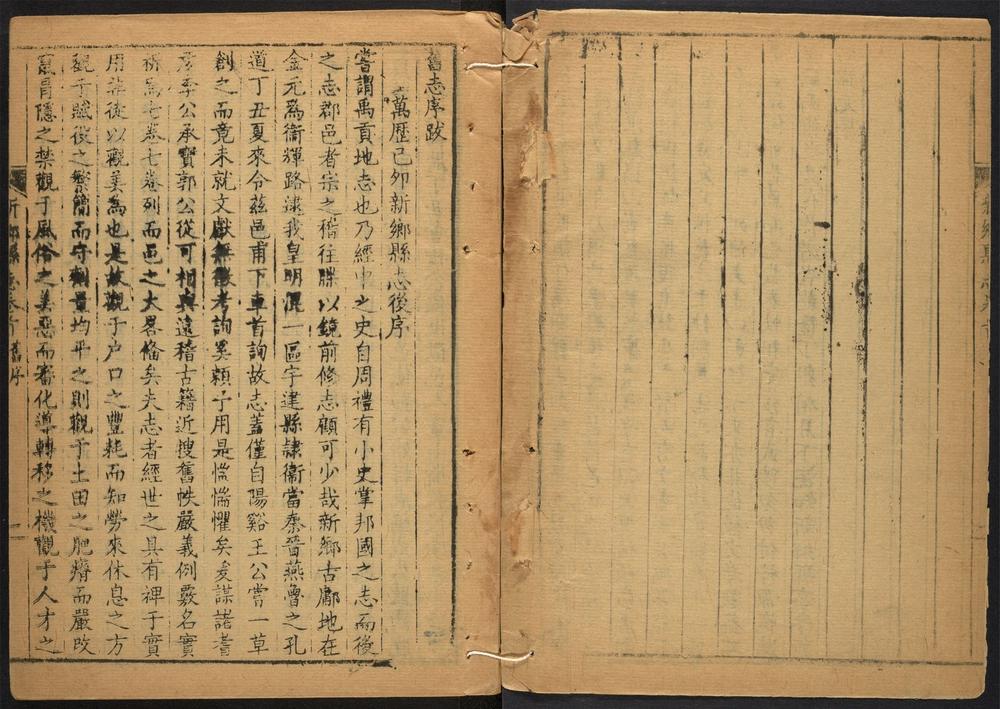 舊志序跋
萬歷己卯新鄉縣志後序
嘗謂禹貢地志也乃經中之史自周禮有小史掌邦國之志而後
之志郡邑者宗之稽往牒以鏡前修志顧可少哉新鄉古鄘地在
金元爲衞輝路逮我皇明混一區宇建縣隸衞當秦晉燕魯之孔
道丁丑夏來令茲邑甫下車首詢故志蓋僅自陽谿王公嘗一草
創之而竟未就文獻無徵考詢奚賴予用是惴惴懼矣爰謀諸耆
彥李公承寶郭公從可相與遠稽古籍近搜舊帙嚴義例覈名實
析爲七卷七卷列而邑之大畧備矣夫志者經世之具有裨于實
用非徒以觀美爲也是故觀于户口之豐耗而知勞來休息之方
觀于賦役之繁簡而守劑量均平之則觀于土田之肥瘠而嚴改
竄冐隱之禁觀于風俗之美惡而審化導轉移之機觀于人才之
新鄉縣志卷首 舊序 一
新鄉縣志卷首